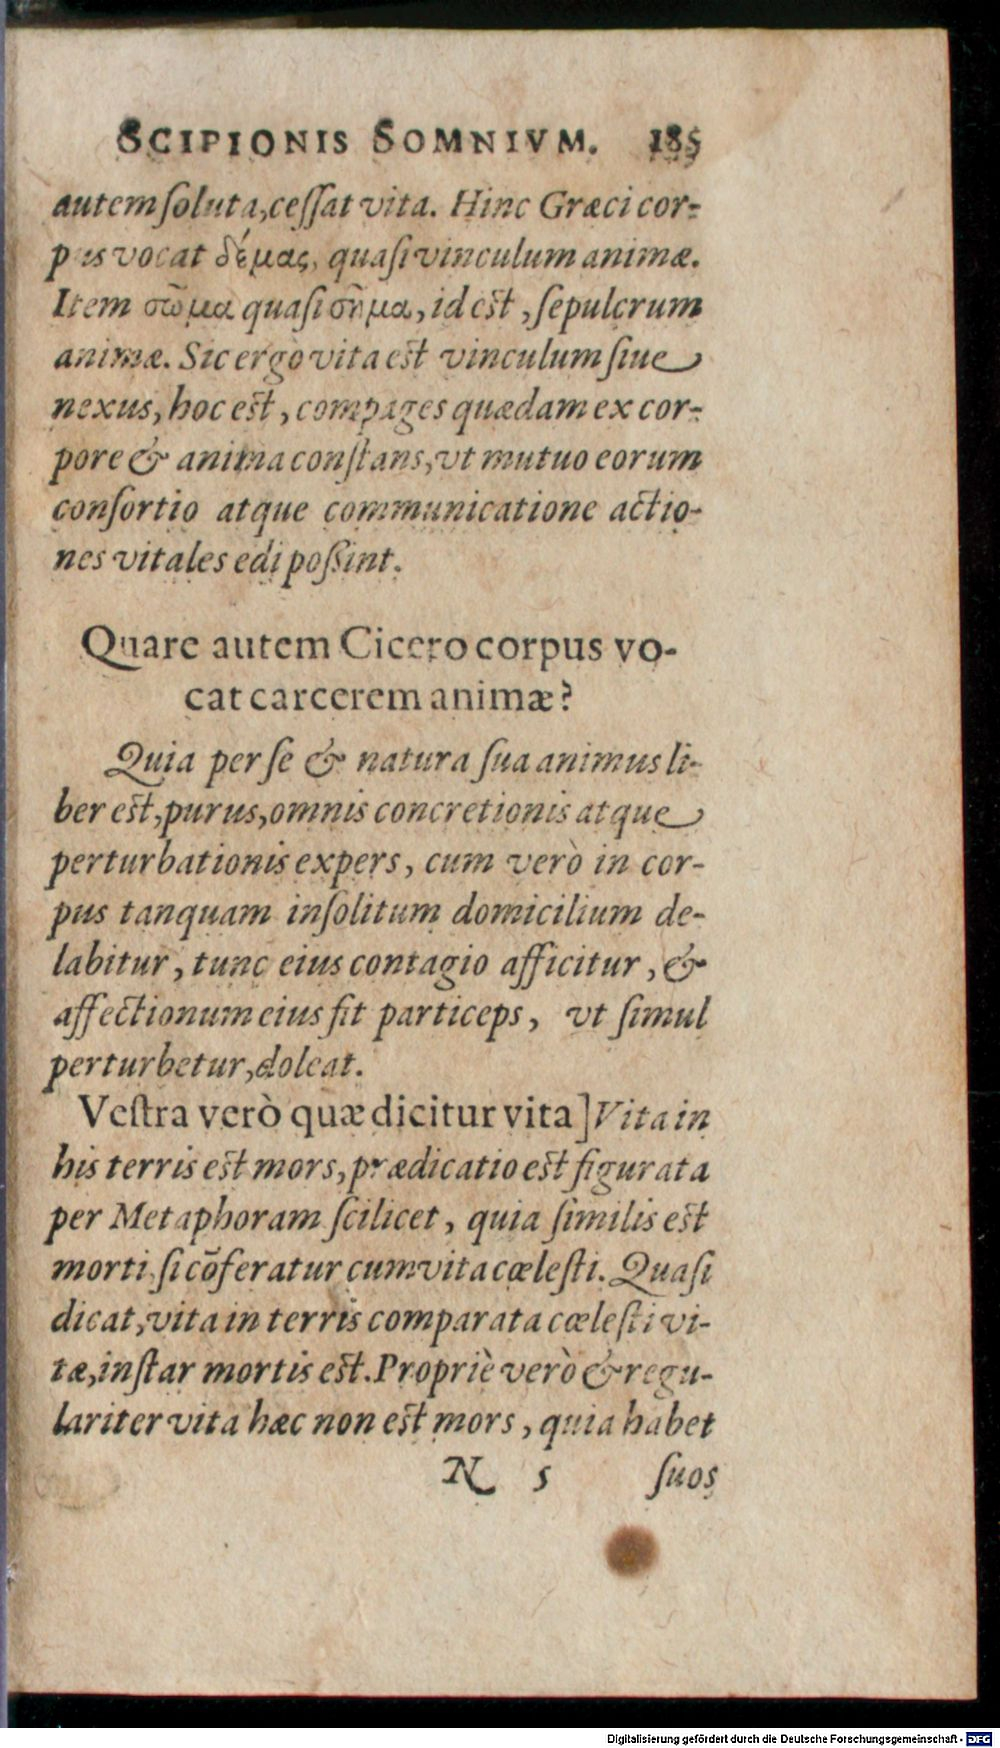 SCIPIONIS SOMNIVM. 185
autem ſoluta, ceſſat vita. Hinc Græci cor-
pus vocat δέμας, quaſi vinculum animæ.
Item σῶμα quaſi σῆμα, id est, ſepulcrum
animæ. Sic ergo vita est vinculum ſiue
nexus, hoc est, compages quædam ex cor-
pore & anima conſtans, vt mutuo eorum
conſortio atque communicatione actio-
nes vitales edi poßint.
Quare autem Cicero corpus vo-
cat carcerem animæ?
Quia per ſe & natura ſua animus li-
ber est, purus, omnis concretionis atque
perturbationis expers, cum verò in cor-
pus tanquam inſolitum domicilium de-
labitur, tunc eius contagio afficitur, &
affectionum eius fit particeps, vt ſimul
perturbetur, doleat.
Veſtra verò quæ dicitur vita] Vita in
his terris est mors, prædicatio est figurata
per Metaphoram ſcilicet, quia ſimilis est
morti ſi cōferatur cum vita cæleſti. Quaſi
dicat, vita in terris comparata cæleſti vi-
tæ, inſtar mortis est. Propriè verò & regu-
lariter vita hæc non est mors, quia habet
N 5 ſuos
Digitalisierung gefördert durch die Deutsche Forschungsgemeinschaft - DFG